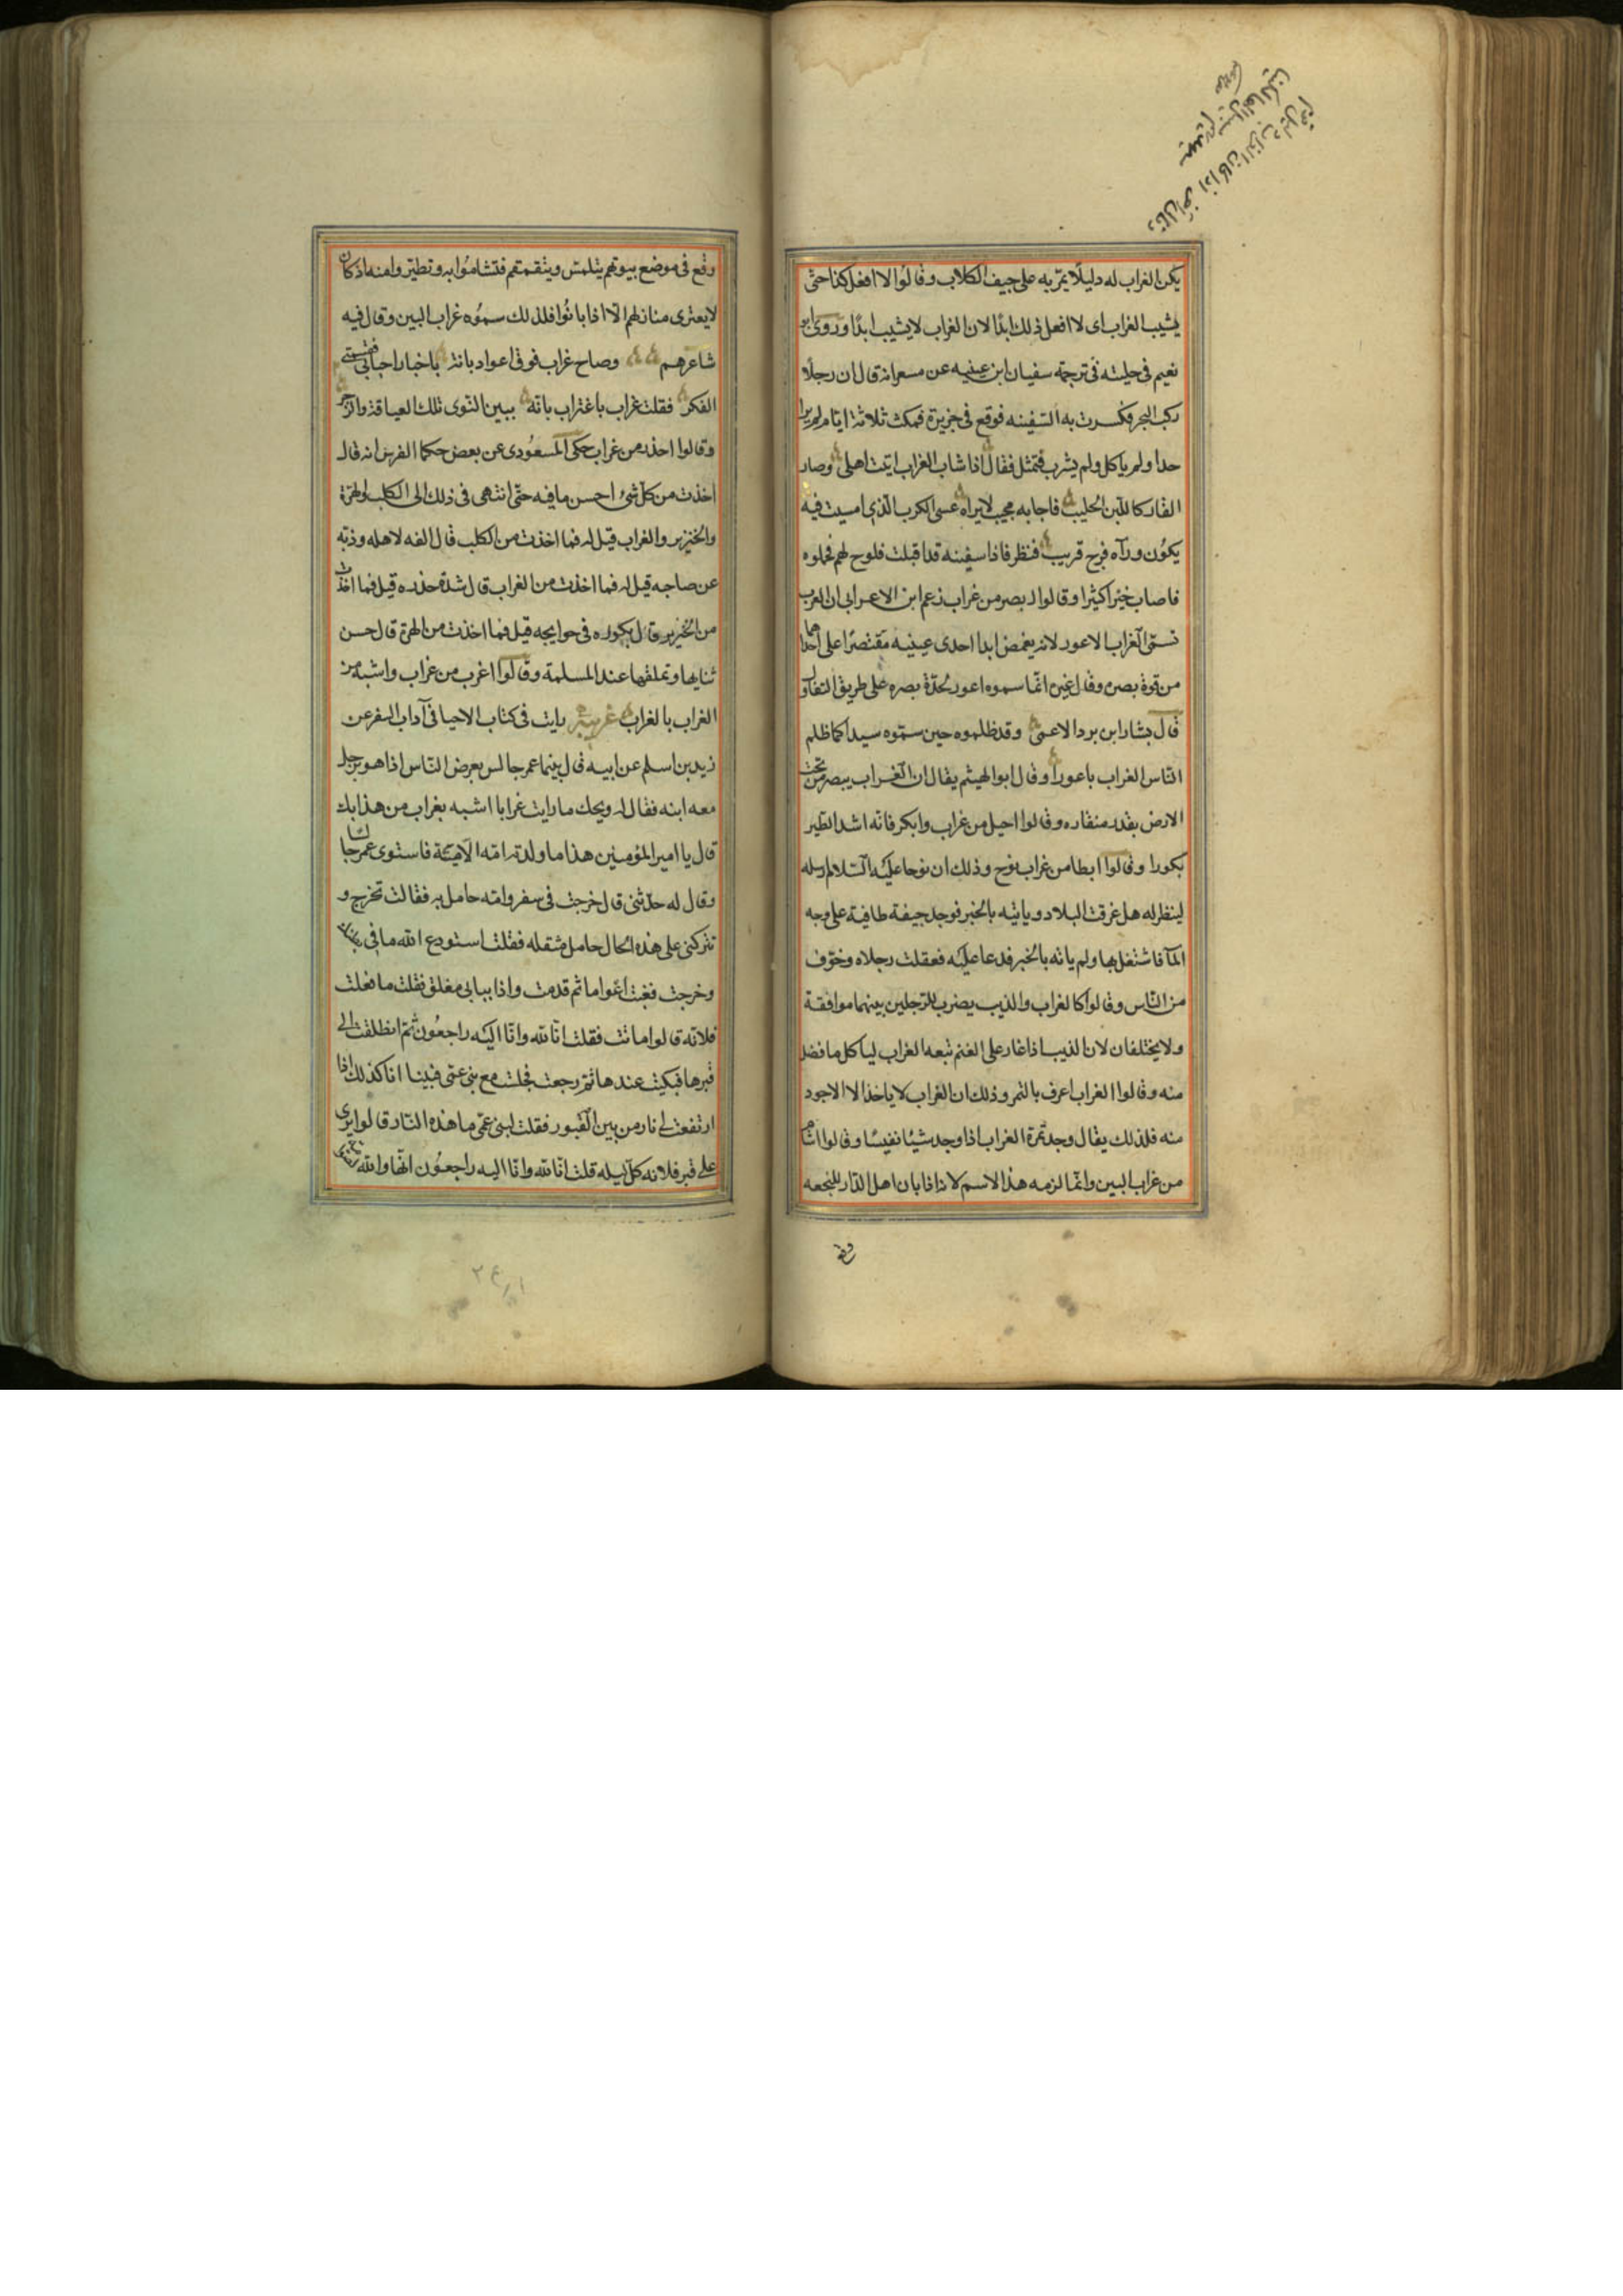 يكن الغراب له دليلا يمر به على جيف الكلاب وقالوا لا افعل كذا حتى
يشيب الغراب اى لا افعل ذلك ابدا لان الغراب لا يشيب ابدا وروى ابو
نعيم فى حليته فى ترجمة سفيان ابن عيينه عن مسعر انه قال ان رجلا
ركب البحر فكسرت به السفينه فوقع فى جزيرة فمكث ثلاثة ايام لم ير ا
حدا ولم ياكل ولم يشرب فتمثل فقال اذا شاب الغراب اتيت اهلى وصار
القار كاللبن الحليب فاجابه مجيب لا يراه عسى الكرب الذى امسيت فيه
يكون ورآه فرج قريب فنظر فاذا سفينه قد اقبلت فلوح لهم فحملوه
فاصاب خيرا كثيرا وقالوا ابصر من غراب زعم ابن الاعرابى ان العرب
تسمى الغراب الاعور لانه يغمض ابدا احدى عينيه مقتصرا على احداهما
من قوة بصره وقال غيره انما سموه اعور لحدة بصره على طريق التفاؤل
قال بشار ابن برد الاعمى وقد ظلموه حين سموه سيدا كما ظلم
الناس الغراب باعورا وقال ابو الهيثم يقال ان الغراب يبصر من تحت
الارض بقدر منقاره وقالوا احيل من غراب وابكر فانه اشد الطير
بكورا وقالوا ابطا من غراب نوح وذلك ان نوحا عليه السلام ارسله
لينظر له هل غرقت البلاد وياتيه بالخبر فوجد جيفة طافية على وجه
المآ فاشتغل بها ولم ياته بالخبر فدعا عليه فعقلت رجلاه وخوف
من الناس وقالوا كالغراب والذيب يضرب للرجلين بينهما موافقة
ولا يختلفان لان الذيب اذا غار على الغنم تبعه الغراب لياكل ما فضل
منه وقالوا الغراب اعرف بالتمر وذلك ان الغراب لا ياخذ الا الاجود
منه فلذلك يقال وجد تمرة الغراب اذا وجد شيئا نفيسا وقالوا اشام
من غراب البين وانما لزمه هذا الاسم لانه اذا بان اهل الدار للنجعه
وقع
وقع فى موضع بيوتهم يتلمس ويتقمقم فتشاموا به وتطيروا منه اذ كان
لا يعترى منازلهم الا اذا بانوا فلذلك سموه غراب البين وقال فيه
شاعرهم وصاح غراب فوق اعواد بانة باخبار احبابى فقسمنى
الفكر فقلت غراب باغتراب بانه ببين النوى تلك العيافة والزجر
وقالوا احذر من غراب حكى المسعودى عن بعض حكما الفرس انه قال
اخذت من كل شئ احسن ما فيه حتى انتهى فى ذلك الى الكلب والهرة
والخنزير والغراب قيل له فما اخذت من الكلب قال الفه لاهله وذبه
عن صاحبه قيل له فما اخذت من الغراب قال شدة حذره قيل فما اخذت
من الخنزير قال بكوره فى حوايجه قيل فما اخذت من الهرة قال حسن
ثنايها وتملقها عند المسلمة وقالوا اغرب من غراب واشبه من
الغراب بالغراب غريبة رايت فى كتاب الاحيا فى آداب السفر عن
زيد بن اسلم عن ابيه قال بينما عمر جالس يعرض الناس اذا هو برجل
معه ابنه فقال له ويحك ما رايت غرابا اشبه بغراب من هذا بك
قال يا امير المؤمنين هذا ما ولدته امه الا ميتة فاستوى عمر جالسا
وقال له حدثنى قال خرجت فى سفر وامه حامل به فقالت تخرج و
تتركنى على هذه الحال حامل مثقله فقلت استودع الله ما فى بطنك
وخرجت فغبت اعواما ثم قدمت واذا ببابى مغلق فقلت ما فعلت
فلانه قالوا ماتت فقلت انا لله وانا اليه راجعون ثم انطلقت الى
قبرها فبكيت عندها ثم رجعت فجلست مع بنى عمى فبينا انا كذلك اذا
ارتفعت لى نار من بين القبور فقلت لبنى عمى ما هذه النار قالوا يرى
على قبر فلانه كل ليله قلت انا لله وانا اليه راجعون انها والله